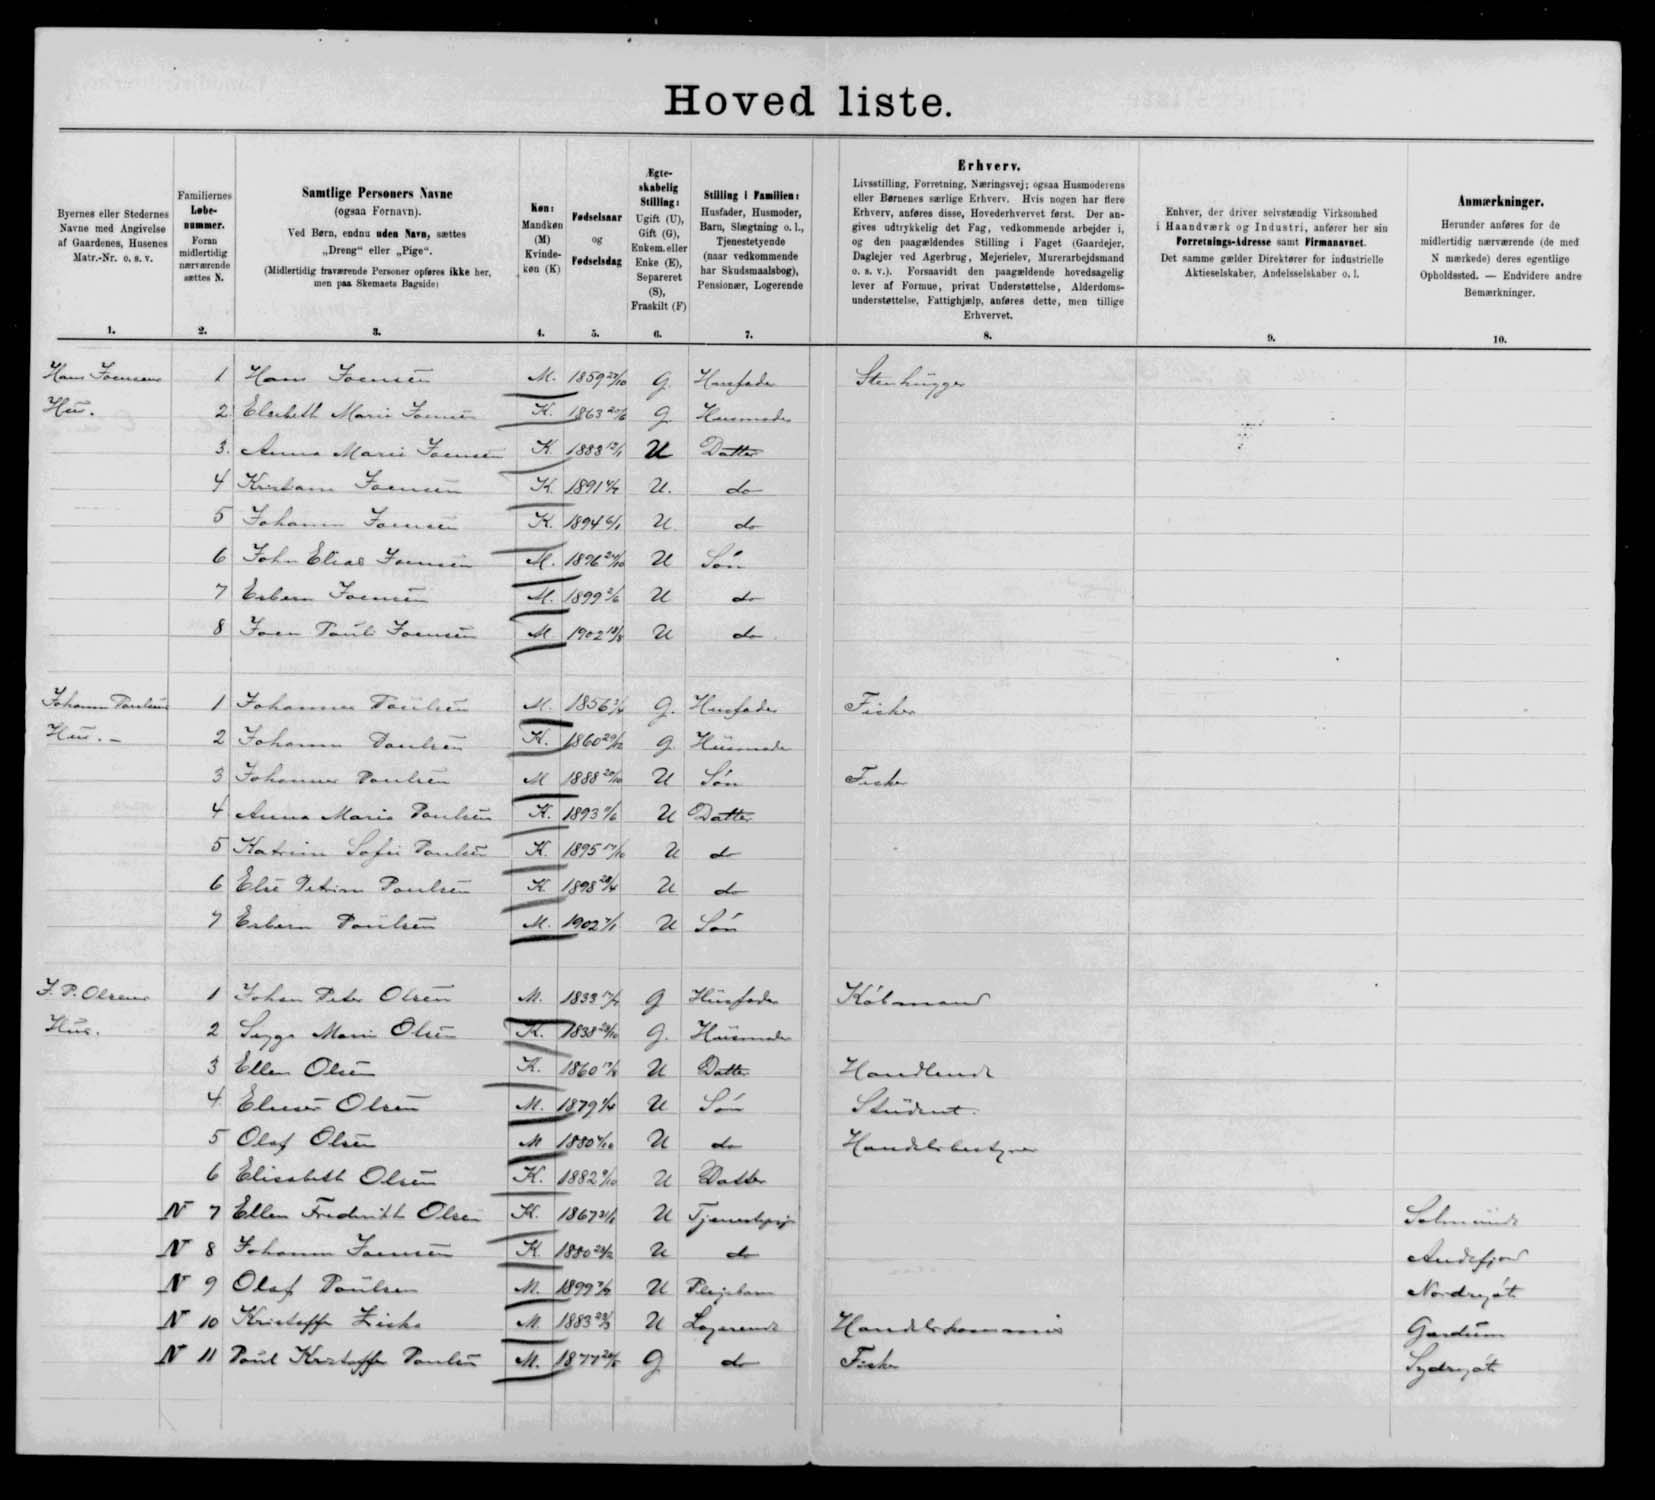 Hoved liste.
Byernes eller Stedernes
Navne med Angivelse
af Gaardenes, Husenes
Matr.-Nr. o. s. v.
1.
Familiernes
Løbe-
nummer.
Foran
midlertidig
nærværende
sættes N.
2.
Samtlige Personers Navne
(ogsaa Fornavn).
Ved Børn, endnu uden Navn, sættes
„Dreng“ eller „Pige“.
(Midlertidig fraværende Personer opføres ikke her,
men paa Skemaets Bagside)
3.
Køn:
Mandkøn
(M)
Kvinde-
køn (K)
4.
Fødselsaar
og
Fødselsdag
5.
Ægte-
skabelig
Stilling:
Ugift (U),
Gift (G),
Enkem. eller
Enke (E),
Separeret
(S),
Fraskilt (F)
6.
Stilling i Familien:
Husfader, Husmoder,
Barn, Slægtning o. l.,
Tjenestetyende
(naar vedkommende
har Skudsmaalsbog),
Pensionær, Logerende
7.
Erhverv.
Livsstilling, Forretning, Næringsvej; ogsaa Husmoderens
eller Børnenes særlige Erhverv. Hvis nogen har flere
Erhverv, anføres disse, Hovederhvervet først. Der an-
gives udtrykkelig det Fag, vedkommende arbejder i,
og den paagældendes Stilling i Faget (Gaardejer,
Daglejer ved Agerbrug, Mejerielev, Murerarbejdsmand
o. s. v.). Forsaavidt den paagældende hovedsagelig
lever af Formue, privat Understøttelse, Alderdoms-
understøttelse, Fattighjælp, anføres dette, men tillige
Erhvervet.
8.
Enhver, der driver selvstændig Virksomhed
i Haandværk og Industri, anfører her sin
Forretnings-Adresse samt Firmanavnet.
Det samme gælder Direktører for industrielle
Aktieselskaber, Andelsselskaber o. l.
9.
Anmærkninger.
Herunder anføres for de
midlertidig nærværende (de med
N mærkede) deres egentlige
Opholdssted. — Endvidere andre
Bemærkninger.
10.
Hans Joensens 1 Hans Joensen M. 1859 G. Husfader Stenhugger
Hus. 2 Elsebeth Marie Joensen K. 1863 G. Husmoder
3. Anna Marie Joensen K. 1883 U Datter
4 Kristiane Joensen K. 1891 U. do
5 Johanne Joensen K. 1894 U. do
6 John Elias Joensen M. 1896 U Søn
7 Esbern Joensen M. 1899 U do
8 Joen Paul Joensen M 1902 U do
Johannes Poulsens 1 Johannes Poulsen M. 1856 G. Husfader Fisker
Hus. 2 Johanne Poulsen K. 1860 G Husmoder
3 Johannes Poulsen M 1888 U Søn Fisker
4 Anna Maria Poulsen K. 1893 U Datter
5 Katrine Sofie Poulsen K. 1895 U do
6 Else Petrine Poulsen K 1898 U do
7 Esbern Poulsen M. 1902 U Søn
J. P. Olsens 1 Johan Peter Olsen M. 1833 G Husfader Købmand
Hus. 2 Marie Olsen K. 1838 G. Husmoder
3 Ellen Olsen K. 1860 U Datter Handlende
4 Olsen M. 1879 U Søn Student.
5 Olaf Olsen M 1880 U do Handelsbestyrer
6 Elisabeth Olsen K. 1882 U Datter
N 7 Ellen Frederikke Olsen K. 1867 U Tjenestepige
N 8 Johanne Joensen K 1880 U do Andefjord
N 9 Olaf Poulsen M. 1899 U Plejebarn
N 10 Kristoffer M. 1883 U Logerende Handelskommis
N 11 Poul Kristoffer Poulsen M. 1877 G do Fisker